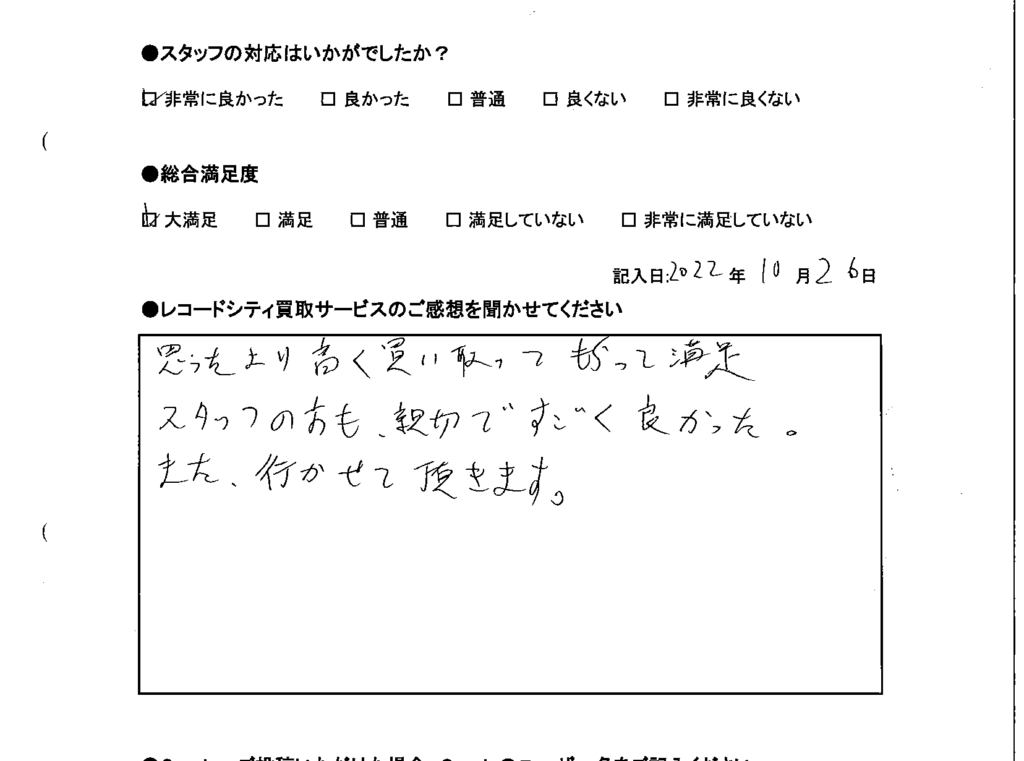 ●スタッフの対応はいかがでしたか？
☑非常に良かった　□ 良かった　□ 普通　□ 良くない　□ 非常に良くない
●総合満足度
☑大満足　□ 満足　□ 普通　□ 満足していない　□ 非常に満足していない
記入日:2022年 10月26日
●レコードシティ買取サービスのご感想を聞かせてください
思ったより高く買い取ってもらって満足
スタッフの方も、親切ですごく良かった。
また、行かせて頂きます。